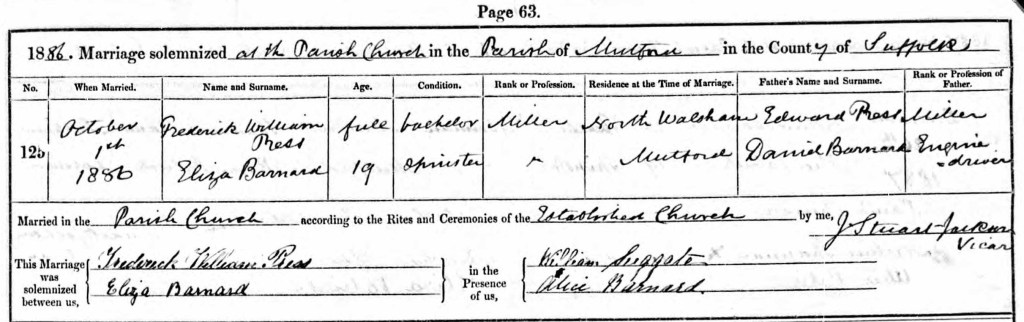 Page 63.
1886. Marriage solemnized at the Parish Church in the Parish of Mutford in the County of Suffolk
No. When Married. Name and Surname. Age. Condition. Rank or Profession. Residence at the Time of Marriage. Father's Name and Surname. Rank or Profession of Father.
125 October 1st 1886 Frederick William Press full bachelor Miller North Walsham Edward Press Miller
Eliza Barnard 19 Spinster Mutford Daniel Barnard Engine-driver
Married in the Parish Church according to the Rites and Ceremonies of the Established Church by me, J Stuart Jackson Vicar
This Marriage was solemnized between us, Frederick William Press in the Presence of us, William Suggate
Eliza Barnard Alice Barnard.